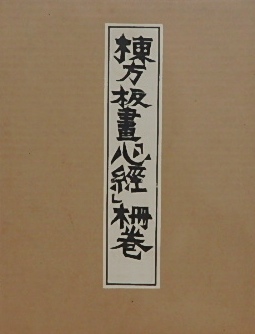 棟方板畫「心經」柵巻